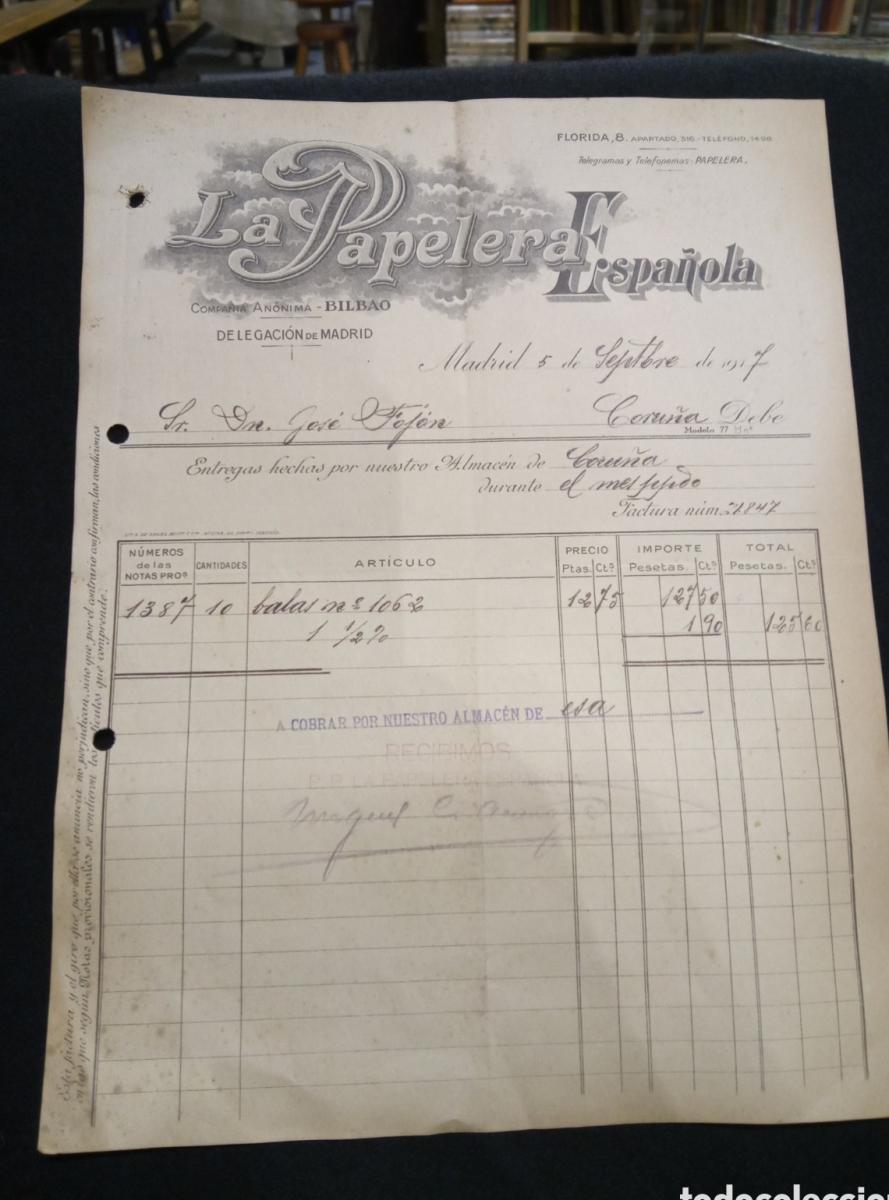 FLORIDA, 8. APARTADO, 316.-TELÉFONO, 1498
Telegramas y Telefonemas: PAPELERA.
La Papelera Española
COMPAÑIA ANÓNIMA - BILBAO
DELEGACIÓN DE MADRID
Madrid 5 de Septbre de 1917
Sr. Dn. José Fojón Coruña Debe
Modelo 77
Entregas hechas por nuestro Almacén de Coruña
durante el mes ppdo
Factura núm. 21847
NÚMEROS de las NOTAS PROs CANTIDADES ARTÍCULO PRECIO Ptas. Cts IMPORTE Pesetas. Cts TOTAL Pesetas. Cts
1387 10 balas nº 1062 12 75 127 50
1 1/2 % 1 90 125 60
A COBRAR POR NUESTRO ALMACÉN DE esa
RECIBIMOS
P. P. LA PAPELERA ESPAÑOLA
Miguel
Esta factura y el giro que por ella se anuncia no perjudican, sino que por el contrario confirman, las condiciones
en las que según Notas provisionales se vendieron los artículos que comprende.
todocoleccion